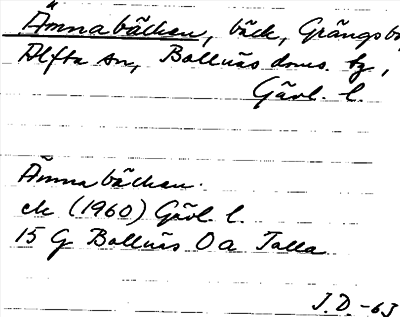 Ämnabäcken, bäck, Grängsbo,
Alfta sn, Bollnäs doms. tg,
Gävl. l.
Ämnabäcken.
ek (1960) Gävl. l.
15 G Bollnäs O a Talla
J.D. -63